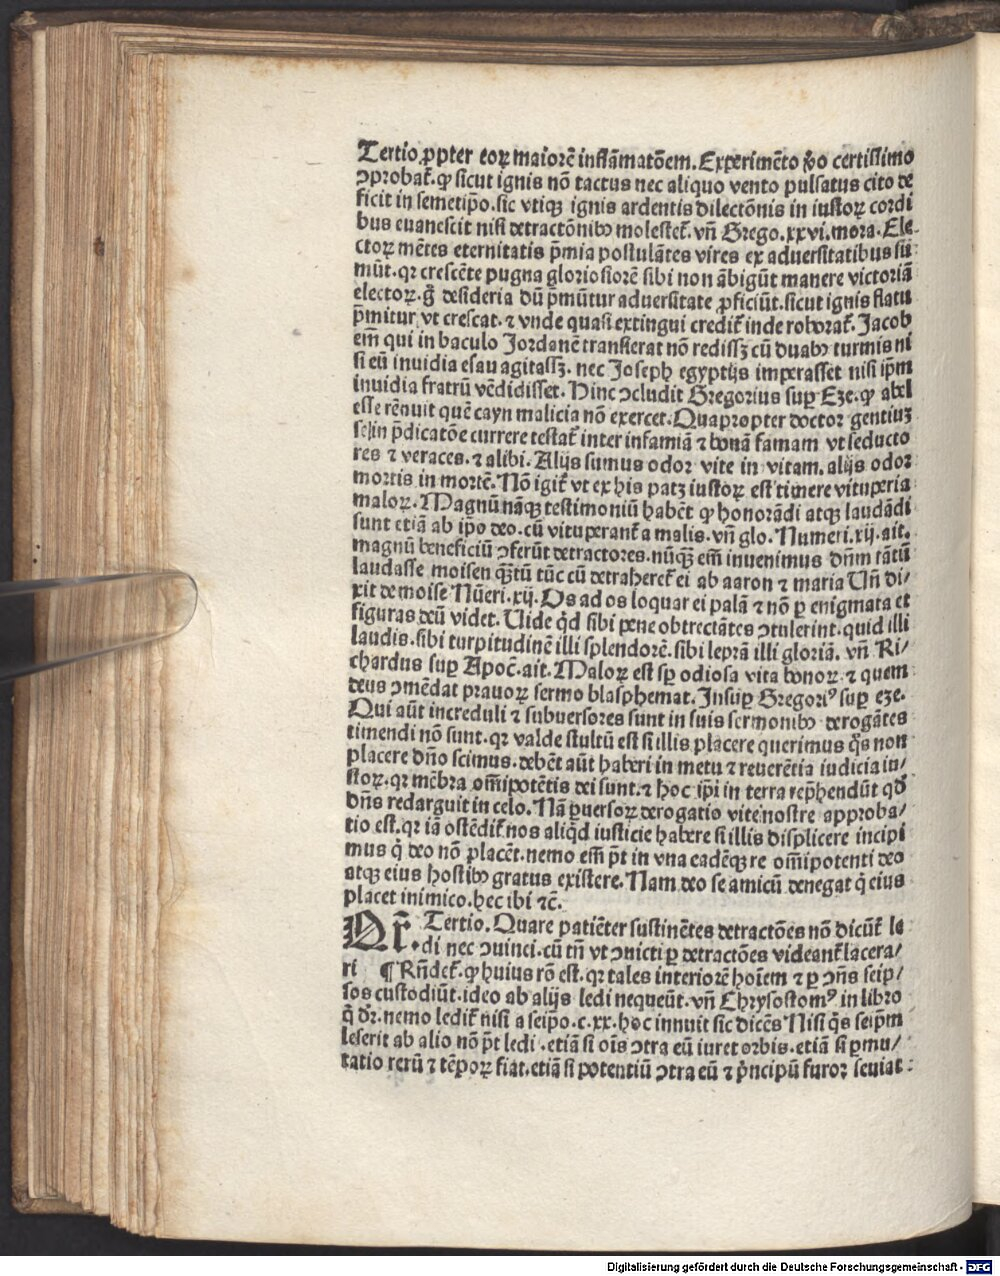 Tertio ꝓpter eoꝝ maiorē inflāmatōem. Experimēto ꝟo certissimo
ↄprobat᷑. ꝙ sicut ignis nō tactus nec aliquo vento pulsatus cito de
ficit in semetip̄o. sic vtiqꝫ ignis ardentis dilectōnis in iustoꝝ cordi
bus euanescit nisi detractōnibꝰ molestet᷑. vn̄ Grego. xxvi. mora. Ele-
ctoꝝ mētes eternitatis p̄mia postulātes vires ex aduersitatibus sū
mūt. qꝛ crescēte pugna gloriosiorē sibi non ābigūt manere victoriā
electoꝝ. g̊ desideria dū p̄mūtur aduersitate ꝓficiūt. sicut ignis flatu
p̄mitur vt crescat. ⁊ vnde quasi extingui credit᷑ inde roborat᷑. Jacob
em̄ qui in baculo Jordanē transierat nō redissꝫ cū duabꝰ turmis ni
si eū inuidia esau agitassꝫ. nec Joseph egyptijs imperasset nisi ip̄m
inuidia fratrū vēdidisset. Hinc ↄcludit Gregorius suꝑ Eze. ꝙ abel
esse rēnuit quē cayn malicia nō exercet. Quapropter doctor gentiuꝫ
se in p̄dicatōe currere testat᷑ inter infamiā ⁊ bonā famam vt seducto
res ⁊ veraces. ⁊ alibi. Alijs sumus odor vite in vitam. alijs odor
mortis in mortē. Nō igit᷑ vt ex his patꝫ iustoꝝ est timere vituperia
maloꝝ. Magnū nāqꝫ testimoniū habēt ꝙ honorādi atqꝫ laudādi
sunt etiā ab ip̄o deo. cū vituperant᷑ a malis. vn̄ glo. Numeri. xij. ait.
magnū beneficiū ↄferūt detractores. nūqꝫ em̄ inuenimus dn̄m tātū
laudasse moisen qꝫtū tūc cū detraheret᷑ ei ab aaron ⁊ maria Vn̄ di/
xit de moise Nūeri. xij. Os ad os loquar ei palā ⁊ nō ꝑ enigmata et
figuras deū videt. Uide qd̄ sibi pene obtrectātes ↄtulerint. quid illi
laudis. sibi turpitudinē illi splendorē. sibi leprā illi gloriā. vn̄ Ri/
chardus suꝑ Apoc̄. ait. Maloꝝ est sꝑ odiosa vita bonoꝝ ⁊ quem
deus ↄmēdat prauoꝝ sermo blasphemat. Insuꝑ Gregoriꝰ suꝑ eze.
Qui aūt increduli ⁊ subuersores sunt in suis sermonibꝰ derogātes
timendi nō sunt. qꝛ valde stultū est si illis placere querimus q̄s non
placere dn̄o scimus. debēt aūt haberi in metu ⁊ reuerētia iudicia iu/
stoꝝ. qꝛ mēbra om̄ipotētis dei sunt. ⁊ hoc ip̄i in terra rep̄hendūt qd̄
dn̄s redarguit in celo. Nā ꝑuersoꝝ derogatio vite nostre approba/
tio est. qꝛ iā ostēdit᷑ nos aliqd̄ iusticie habere si illis displicere incipi
mus q̇ deo nō placēt. nemo em̄ p̄t in vna eadēqꝫ re om̄ipotenti deo
atqꝫ eius hostibꝰ gratus existere. Nam deo se amicū denegat q̇ eius
placet inimico. hec ibi ⁊c̄.
Qr̄. Tertio. Quare patiēter sustinētes detractōes nō dicūt᷑ le
di nec ↄuinci. cū tn̄ vt ↄuicti ꝑ detractōes videant᷑ lacera/
ri ¶ Rn̄det᷑. ꝙ huius rō est. qꝛ tales interiorē hoīem ⁊ ꝑ ↄn̄s seip/
sos custodiūt. ideo ab alijs ledi nequeūt. vn̄ Chrysostomꝰ in libro
q̇ dr̄. nemo ledit᷑ nisi a seip̄o. c. xx. hoc innuit sic dicēs Nisi q̄s seip̄m
leserit ab alio nō p̄t ledi. etiā si oīs ↄtra eū iuret orbis. etiā si ꝑmu/
tatio rerū ⁊ tēpoꝝ fiat. etiā si potentiū ↄtra eū ⁊ p̄ncipū furor seuiat:
Digitalisierung gefördert durch die Deutsche Forschungsgemeinschaft - DFG